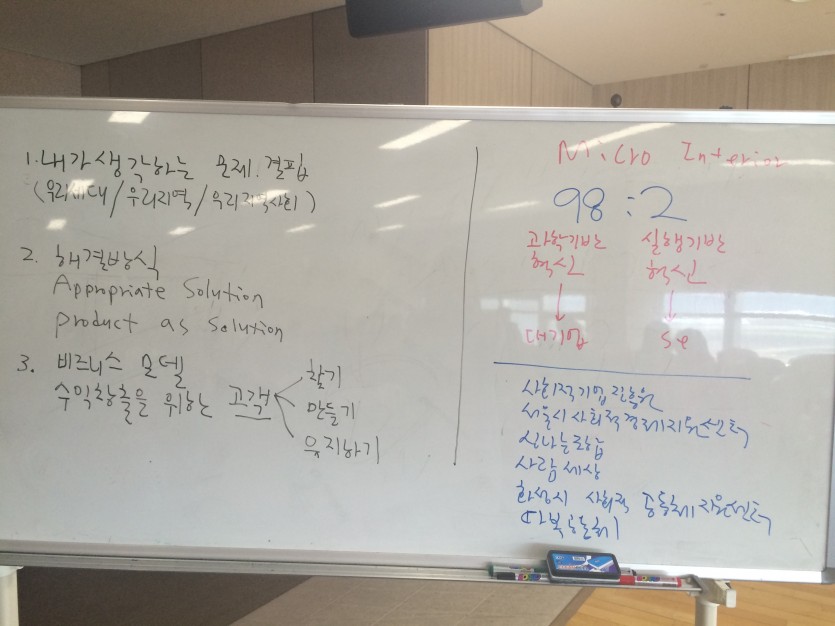 1. 내가 생각하는 문제. 결핍
(우리세대/우리지역/우리지역사회)
2. 해결방식
Appropriate Solution
product as solution
3. 비즈니스 모델
수익창출을 위하는 고객
찾기
만들기
유지하기
Micro Interior
98 : 2
과학기반 실행기반
혁신 혁신
대기업 se
사회적기업진흥원
서울시 사회적경제지원센터
신나는조합
사람세상
화성시 사회적 공동체지원센터
따복공동체